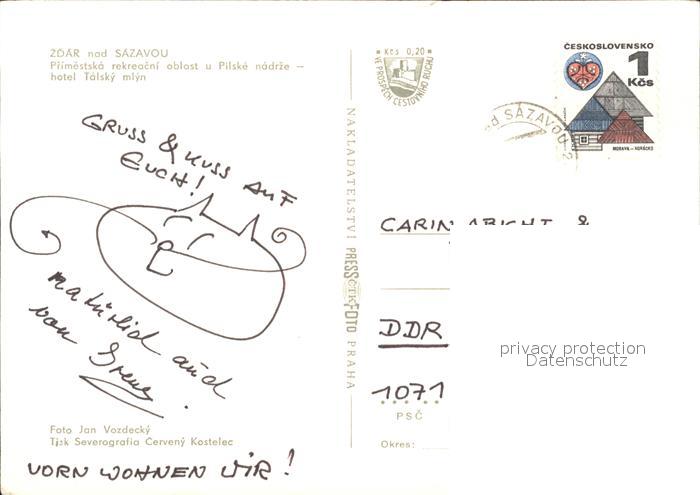 ŽĎÁR nad SÁZAVOU
Příměstská rekreační oblast u Pilské nádrže –
hotel Tálský mlýn
Kčs 0,20
VE PROSPĚCH CESTOVNÍHO RUCHU
ČESKOSLOVENSKO
1
Kčs
MORAVA – HORÁCKO
d SÁZAVOU 2
GRUSS & KUSS AUF
EUCH!
natürlich auch
von
NAKLADATELSTVÍ PRESSFOTO PRAHA
ČTK
CARIN ABICHT &
DDR
1071
PSČ
Okres:
privacy protection
Datenschutz
Foto Jan Vozdecký
Tisk Severografia Červený Kostelec
VORN WOHNEN WIR!